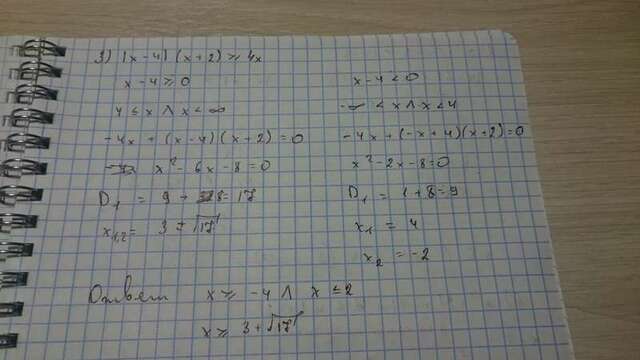 3) |x-4| (x+2) ≥ 4x
x-4 ≥ 0
4 ≤ x ∧ x < ∞
-4x + (x-4)(x+2) = 0
x² - 6x - 8 = 0
D₁ = 9 + 8 = 17
x₁,₂ = 3 ± √17
x-4 < 0
-∞ < x ∧ x < 4
-4x + (-x+4)(x+2) = 0
x² - 2x - 8 = 0
D₁ = 1 + 8 = 9
x₁ = 4
x₂ = -2
Ответ x ≥ -4 ∧ x ≤ 2
x ≥ 3 + √17